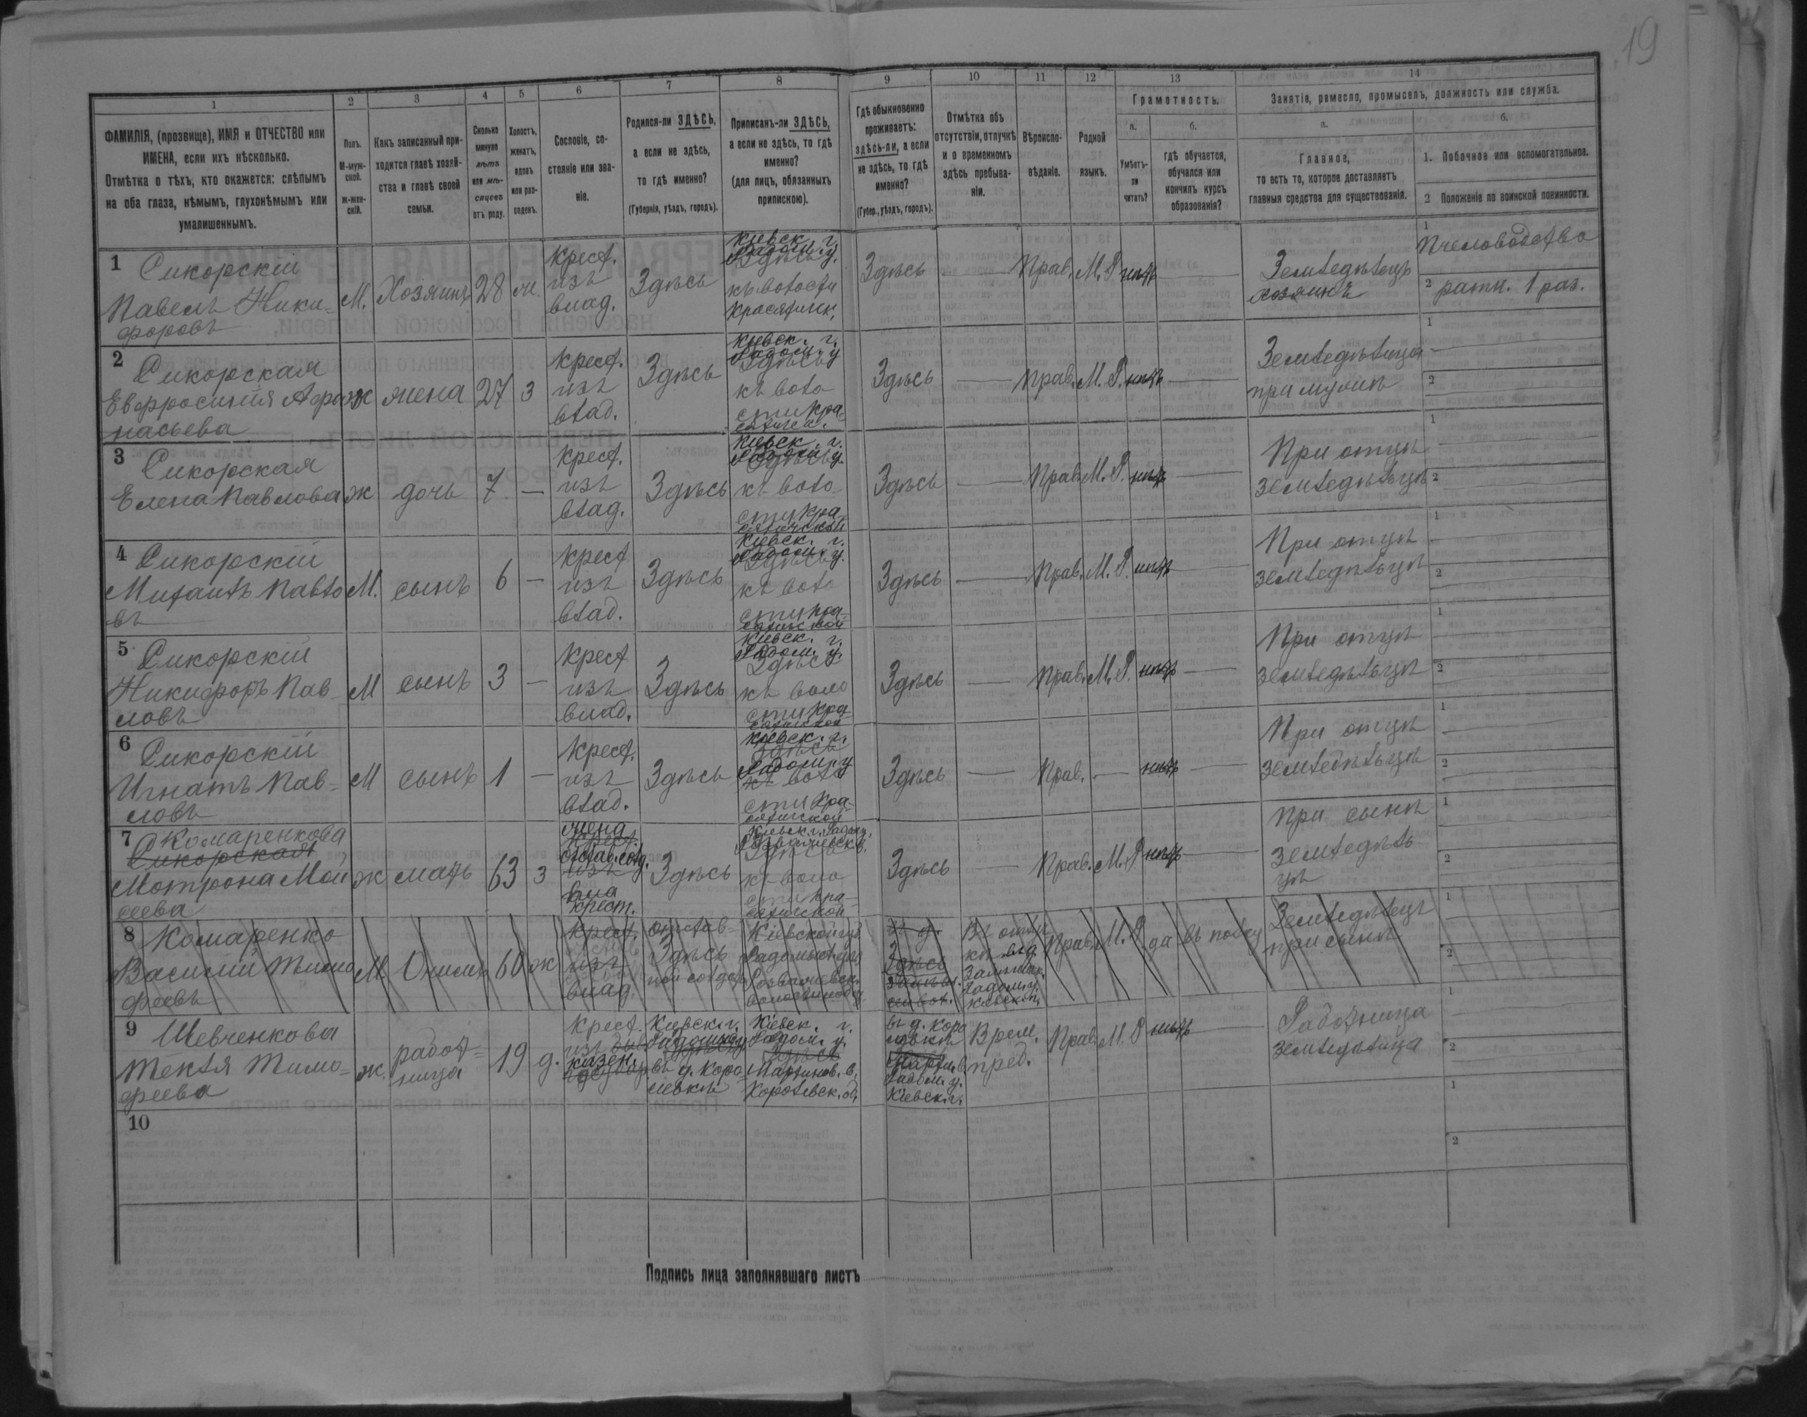 19
1 2 3 4 5 6 7 8 9 10 11 12 13 14
ФАМИЛІЯ, (прозвище), ИМЯ и ОТЧЕСТВО или
ИМЕНА, если ихъ нѣсколько.
Отмѣтка о тѣхъ, кто окажется: слѣпымъ
на оба глаза, нѣмымъ, глухонѣмымъ или
умалишеннымъ.
Полъ.
М-муж-
ской.
ж-жен-
скій.
Какъ записанный при-
ходится главѣ хозяй-
ства и главѣ своей
семьи.
Сколько
минуло
лѣтъ
или мѣ-
сяцевъ
отъ роду.
Холостъ,
женатъ,
вдовъ
или раз-
веденъ.
Сословіе, со-
стояніе или зва-
ніе.
Родился-ли ЗДѢСЬ,
а если не здѣсь,
то гдѣ именно?
(Губернія, уѣздъ, городъ).
Приписанъ-ли ЗДѢСЬ,
а если не здѣсь, то гдѣ
именно?
(для лицъ, обязанныхъ
припискою).
Гдѣ обыкновенно
проживаетъ:
здѣсь-ли, а если
не здѣсь, то гдѣ
именно?
(Губер., уѣздъ, городъ).
Отмѣтка объ
отсутствіи, отлучкѣ
и о временномъ
здѣсь пребыва-
ніи.
Вѣроиспо-
вѣданіе.
Родной
языкъ.
Грамотность.
а.
Умѣетъ-
ли
читать?
б.
гдѣ обучается,
обучался или
кончилъ курсъ
образованія?
Занятіе, ремесло, промыселъ, должность или служба.
а.
Главное,
то есть то, которое доставляетъ
главныя средства для существованія.
б.
1. Побочное или вспомогательное.
2 Положеніе по воинской повинности.
1 Сикорскій
Павелъ Ники-
форовъ
М. Хозяинъ 28 ж.
Крест.
изъ
влад.
Здѣсь
Кіевск. г.
Радом. у.
Здѣсь
къ волости
Красятичск.
Здѣсь — Прав. М. Р. нѣтъ —
Земледѣлецъ
хозяинъ
1 Пчеловодство
2 ратн. 1 раз.
2 Сикорская
Евфросинія Афа
насьева
ж жена 27 з
Крест.
изъ
влад.
Здѣсь
Кіевск. г.
Радом. у
Здѣсь
къ воло
сти Кра
Здѣсь — Прав. М. Р. нѣтъ —
Земледѣлица
при мужѣ
1 —
2
3 Сикорская
Елена Павлова
ж дочь 7. —
Крест.
изъ
влад.
Здѣсь
Кіевск. г.
Радом. у.
Здѣсь
къ воло
сти Кра
сятичской
Здѣсь — Прав. М. Р. нѣтъ —
При отцѣ
земледѣльцѣ
1
2
4 Сикорскій
Михаилъ Павло
въ
М. сынъ 6 —
Крест
изъ
влад.
Здѣсь
Кіевск. г.
Радом. у.
Здѣсь
къ воло
сти Кра-
сятичской
Здѣсь — Прав. М. Р. нѣтъ —
При отцѣ
земледѣльцѣ
1
2
5 Сикорскій
Никифоръ Пав-
ловъ
М сынъ 3 —
Крест
изъ
влад.
Здѣсь
Кіевск. г.
Радом. у.
Здѣсь
къ воло
сти Кра
сятичской
Здѣсь — Прав. М. Р. нѣтъ —
При отцѣ
земледѣльцѣ
1
2
6 Сикорскій
Игнатъ Пав-
ловъ
М сынъ 1 —
Крест.
изъ
влад.
Здѣсь
Кіевск. г.
Здѣсь
Радом. у
къ воло
сти Кра-
сятичской
Здѣсь — Прав. — нѣтъ —
При отцѣ
земледѣльцѣ
1
2
7 Комаренкова
Сикорская
Мотрона Мой
сеева
ж мать 63 з
жена
Крест.
отстав. солд.
изъ
вла
крест.
Здѣсь
Здѣсь
къ воло
сти Кра-
сятичской
Здѣсь — Прав. М. Р нѣтъ —
При сынѣ
земледѣль
цѣ
1
2
8 Комаренко
Василій Тимо
феевъ
М Отчимъ 60 ж
Крест.
изъ
влад.
отстав-
Здѣсь
ной солдатъ
Кіевской губ
Радомысл. у.
Здѣсь
Прав. М. Р да
Земледѣлецъ
при сынѣ
1
2
9 Шевченкова
Текля Тимо-
феева
ж. работ-
ница 19 д.
Крест.
изъ
казен.
Кіевск. г.
Радомыс. у
Здѣсь
въ д. Коро
левкѣ
Кіевск. г.
Радом. у.
Здѣсь
Мартинов. о.
въ д. Коро
левкѣ
Радом. у.
Кіевск. г.
Врем.
преб.
Прав. М. Р нѣтъ —
Работница
земледѣлица
1
2
10
1
2
Подпись лица заполнявшаго листъ